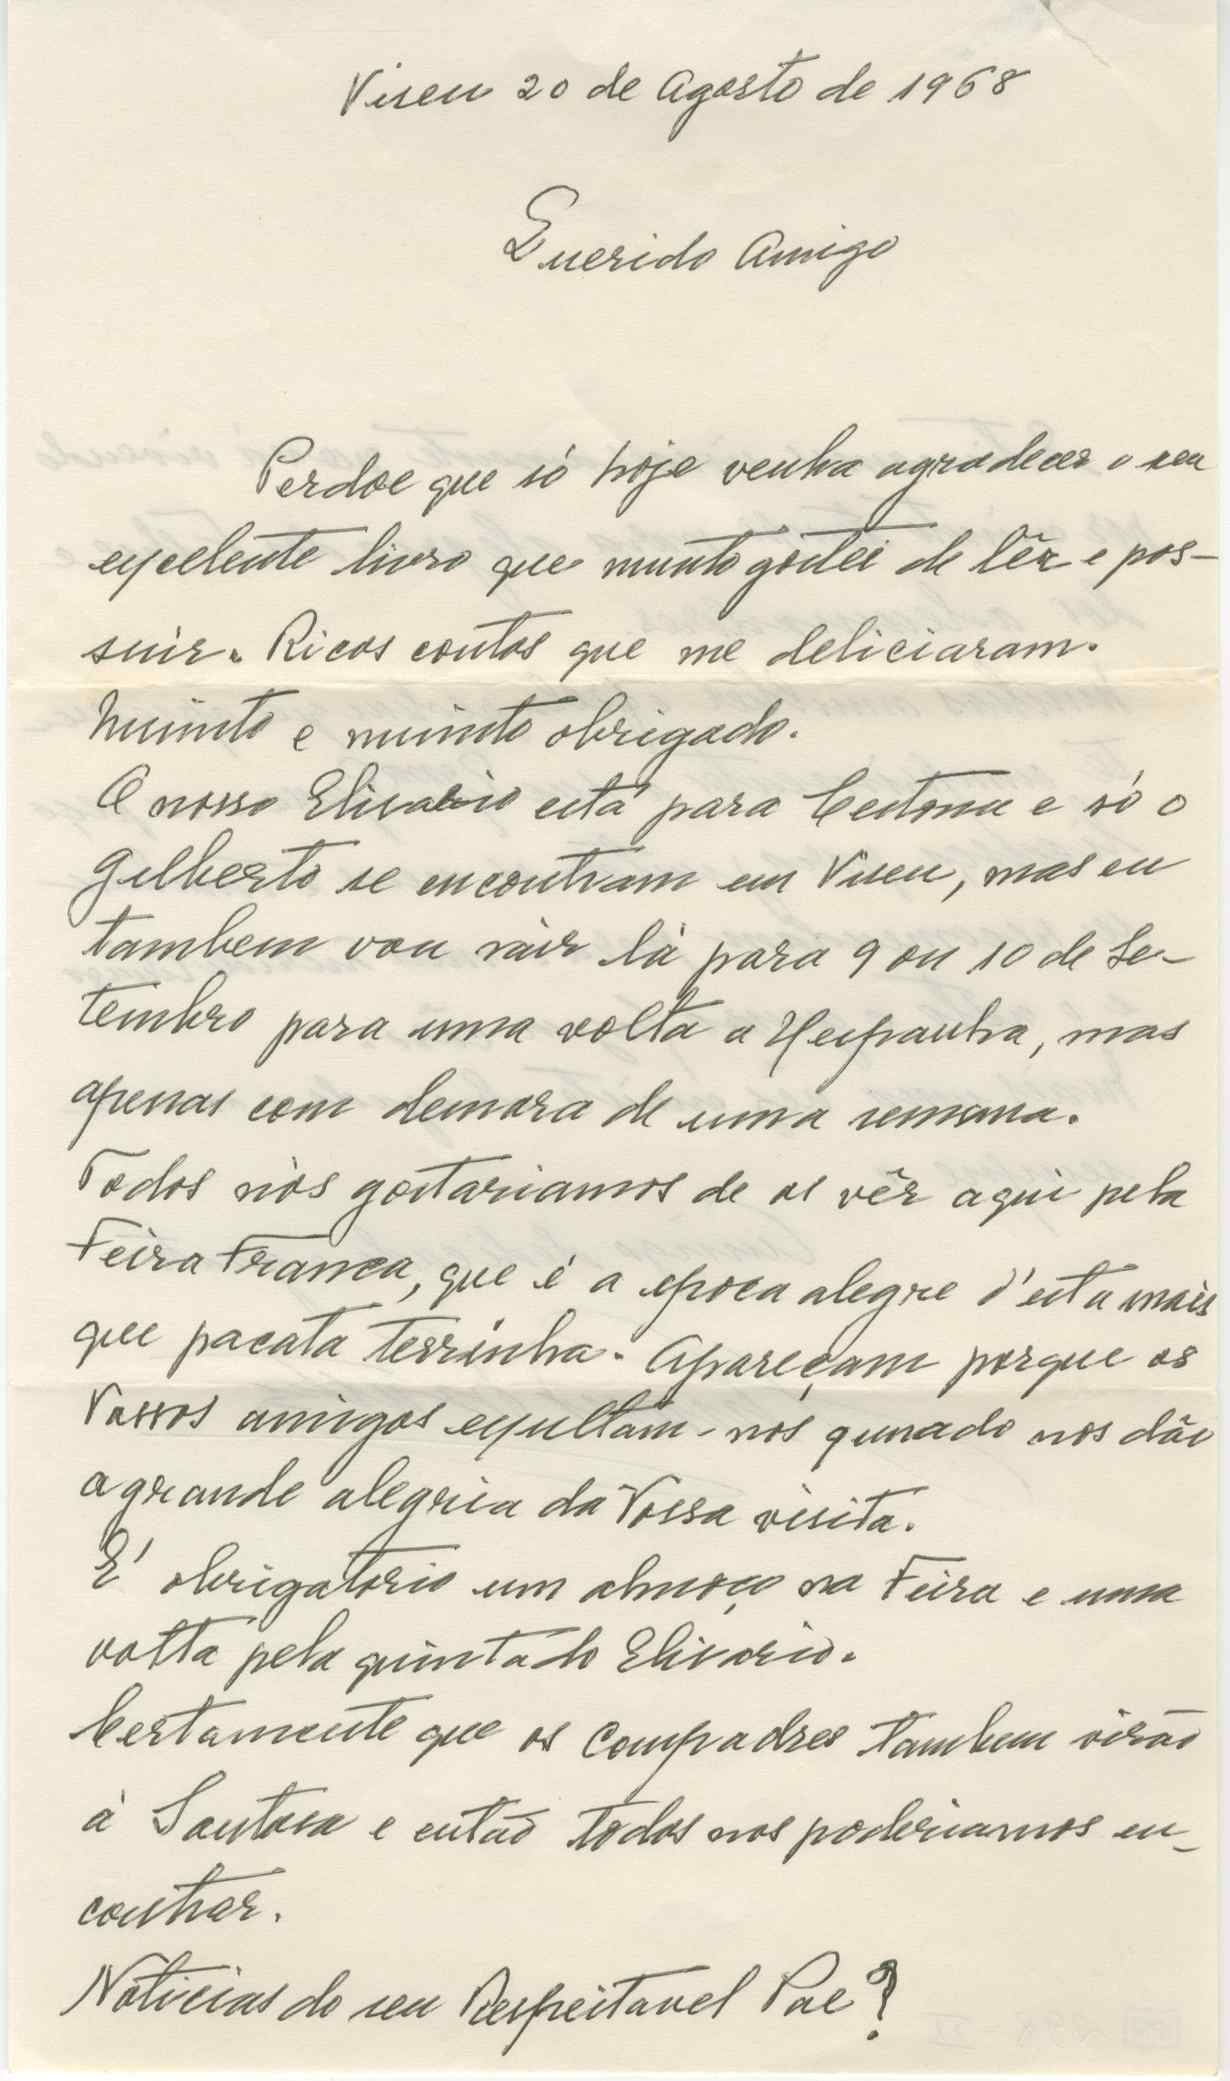 Viseu 20 de Agosto de 1968
Querido Amigo
Perdoe que só hoje venha agradecer o seu
excelente livro que munto gostei de lêr e pos-
suir. Ricos contos que me deliciaram.
Muinto e muinto obrigado.
O nosso Elisario está para Cestona e só o
Gilberto se encontram em Viseu, mas eu
tambem vou sair lá para 9 ou 10 de Se-
tembro para uma volta a Hespanha, mas
apenas com demora de uma semana.
Todos nós gostariamos de os vêr aqui pela
Feira Franca, que é a epoca alegre d'esta mais
que pacata terrinha. Apareçam porque os
Vossos amigos exultam-nos quando nos dão
a grande alegria da Vossa visita.
E' obrigatorio um almoço na Feira e uma
volta pela quinta do Elisario.
Certamente que os Compadres tambem virão
á Santosa e então todos nos poderiamos en-
contrar.
Noticias do seu Respeitavel Pae?